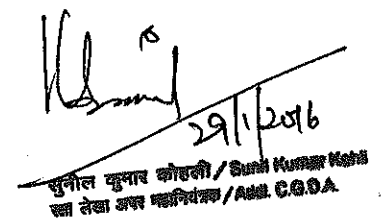 29/1/2016
सुनील कुमार कोहली / Sunil Kumar Kohli
रक्षा लेखा अपर महानियंत्रक / Addl. C.G.D.A.